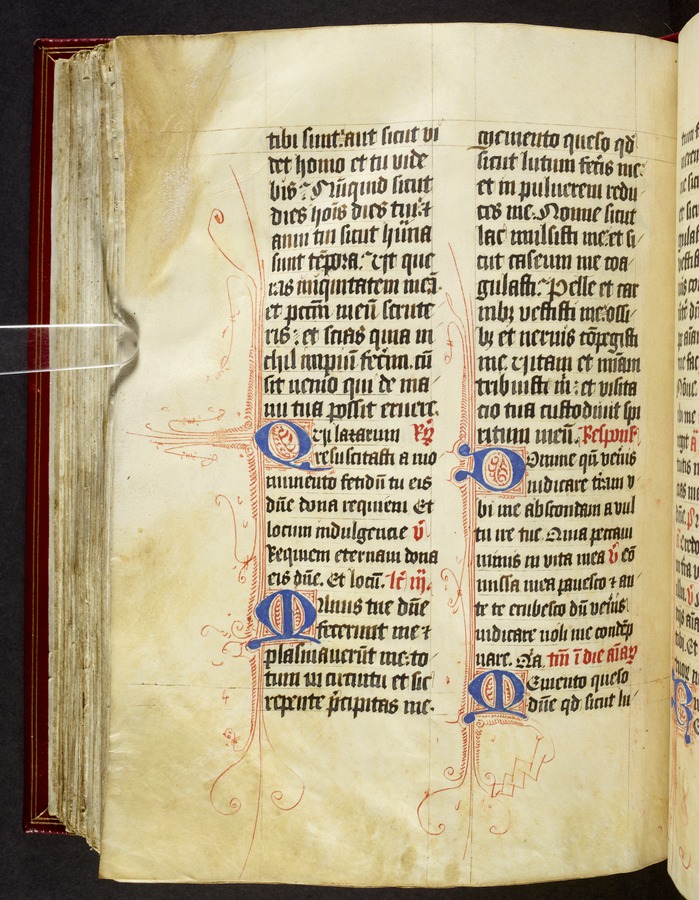 tibi sunt: aut sicut vi
det homo et tu vide
bis? Nũquid sicut
dies hoĩs dies tui: ⁊
anni tui sicut hũna
sunt tẽpora. Ut que
ras iniquitatem meã.
et pctm̃ meũ scrute
ris: et scias quia ni
chil impiũ fecim. cũ
sit nemo qui de ma
nu tua possit eruere.
Qui lazarum R̃
resuscitasti a mo
numento fetidũ tu eis
dñe dona requiem Et
locum indulgencie V̊
Requiem eternam dona
eis dñe. Et locũ. lc̃ iij.
Manus tue dñe
fecerunt me ⁊
plasmauerũt me: to
tum in circuitu et sic
repente p̃cipitas me.
memento queso qđ
sicut lutum fec̃is me:
et in puluerem redu
ces me. Nonne sicut
lac mulsisti me: et si
cut caseum me coa
gulasti. Pelle et car
nibꝫ vestisti me: ossi
bꝫ et neruis cõpegisti
me. vitam et miãm
tribuisti m̃: et visita
cio tua custodiuit spi
ritum meũ. Respons̃
Domine qñ ven̾is
iudicare tr̃am v
bi me abscondam a vul
tu ire tue. Quia peccaui
nimis in vita mea V̊ cõ
missa mea pauesco ⁊ an
te te erubesco dũ ven̾is
iudicare noli me condẽp
nare. Q̃a. tm̃ ĩ die aĩaꝝ
Memento queso
dñe qđ sicut lu